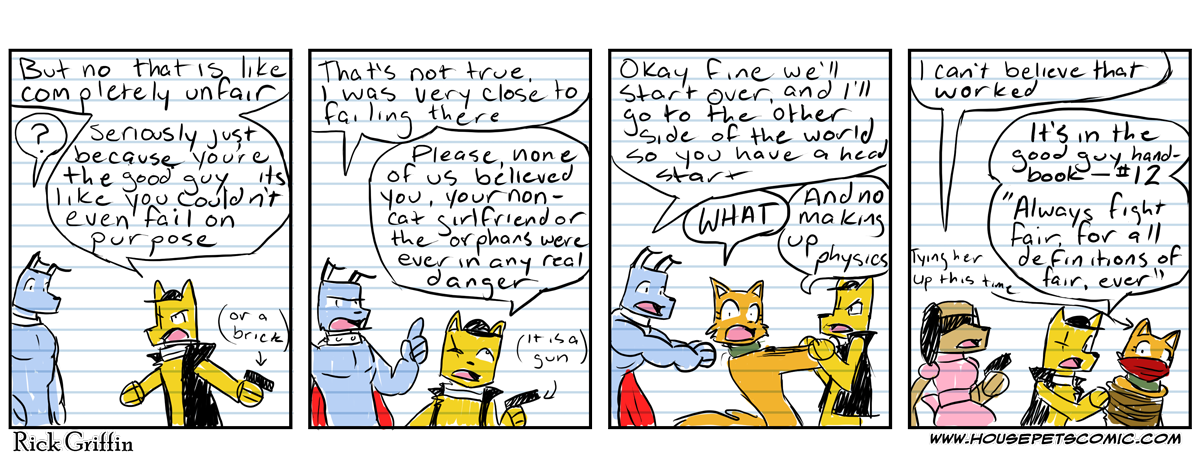 But no that is like
completely unfair
?
Seriously just
because you're
the good guy its
like you couldn't
even fail on
purpose
(or a
brick)
That's not true,
I was very close to
failing there
Please, none
of us believed
you, your non-
cat girlfriend or
the orphans were
ever in any real
danger
(It is a
gun)
Okay fine we'll
start over, and I'll
go to the other
side of the world
so you have a head
start
WHAT
And no
making
up
physics
I can't believe that
worked
It's in the
good guy hand-
book — #12
"Always fight
fair, for all
definitions of
fair, ever"
Tying her
up this time
Rick Griffin
WWW.HOUSEPETSCOMIC.COM